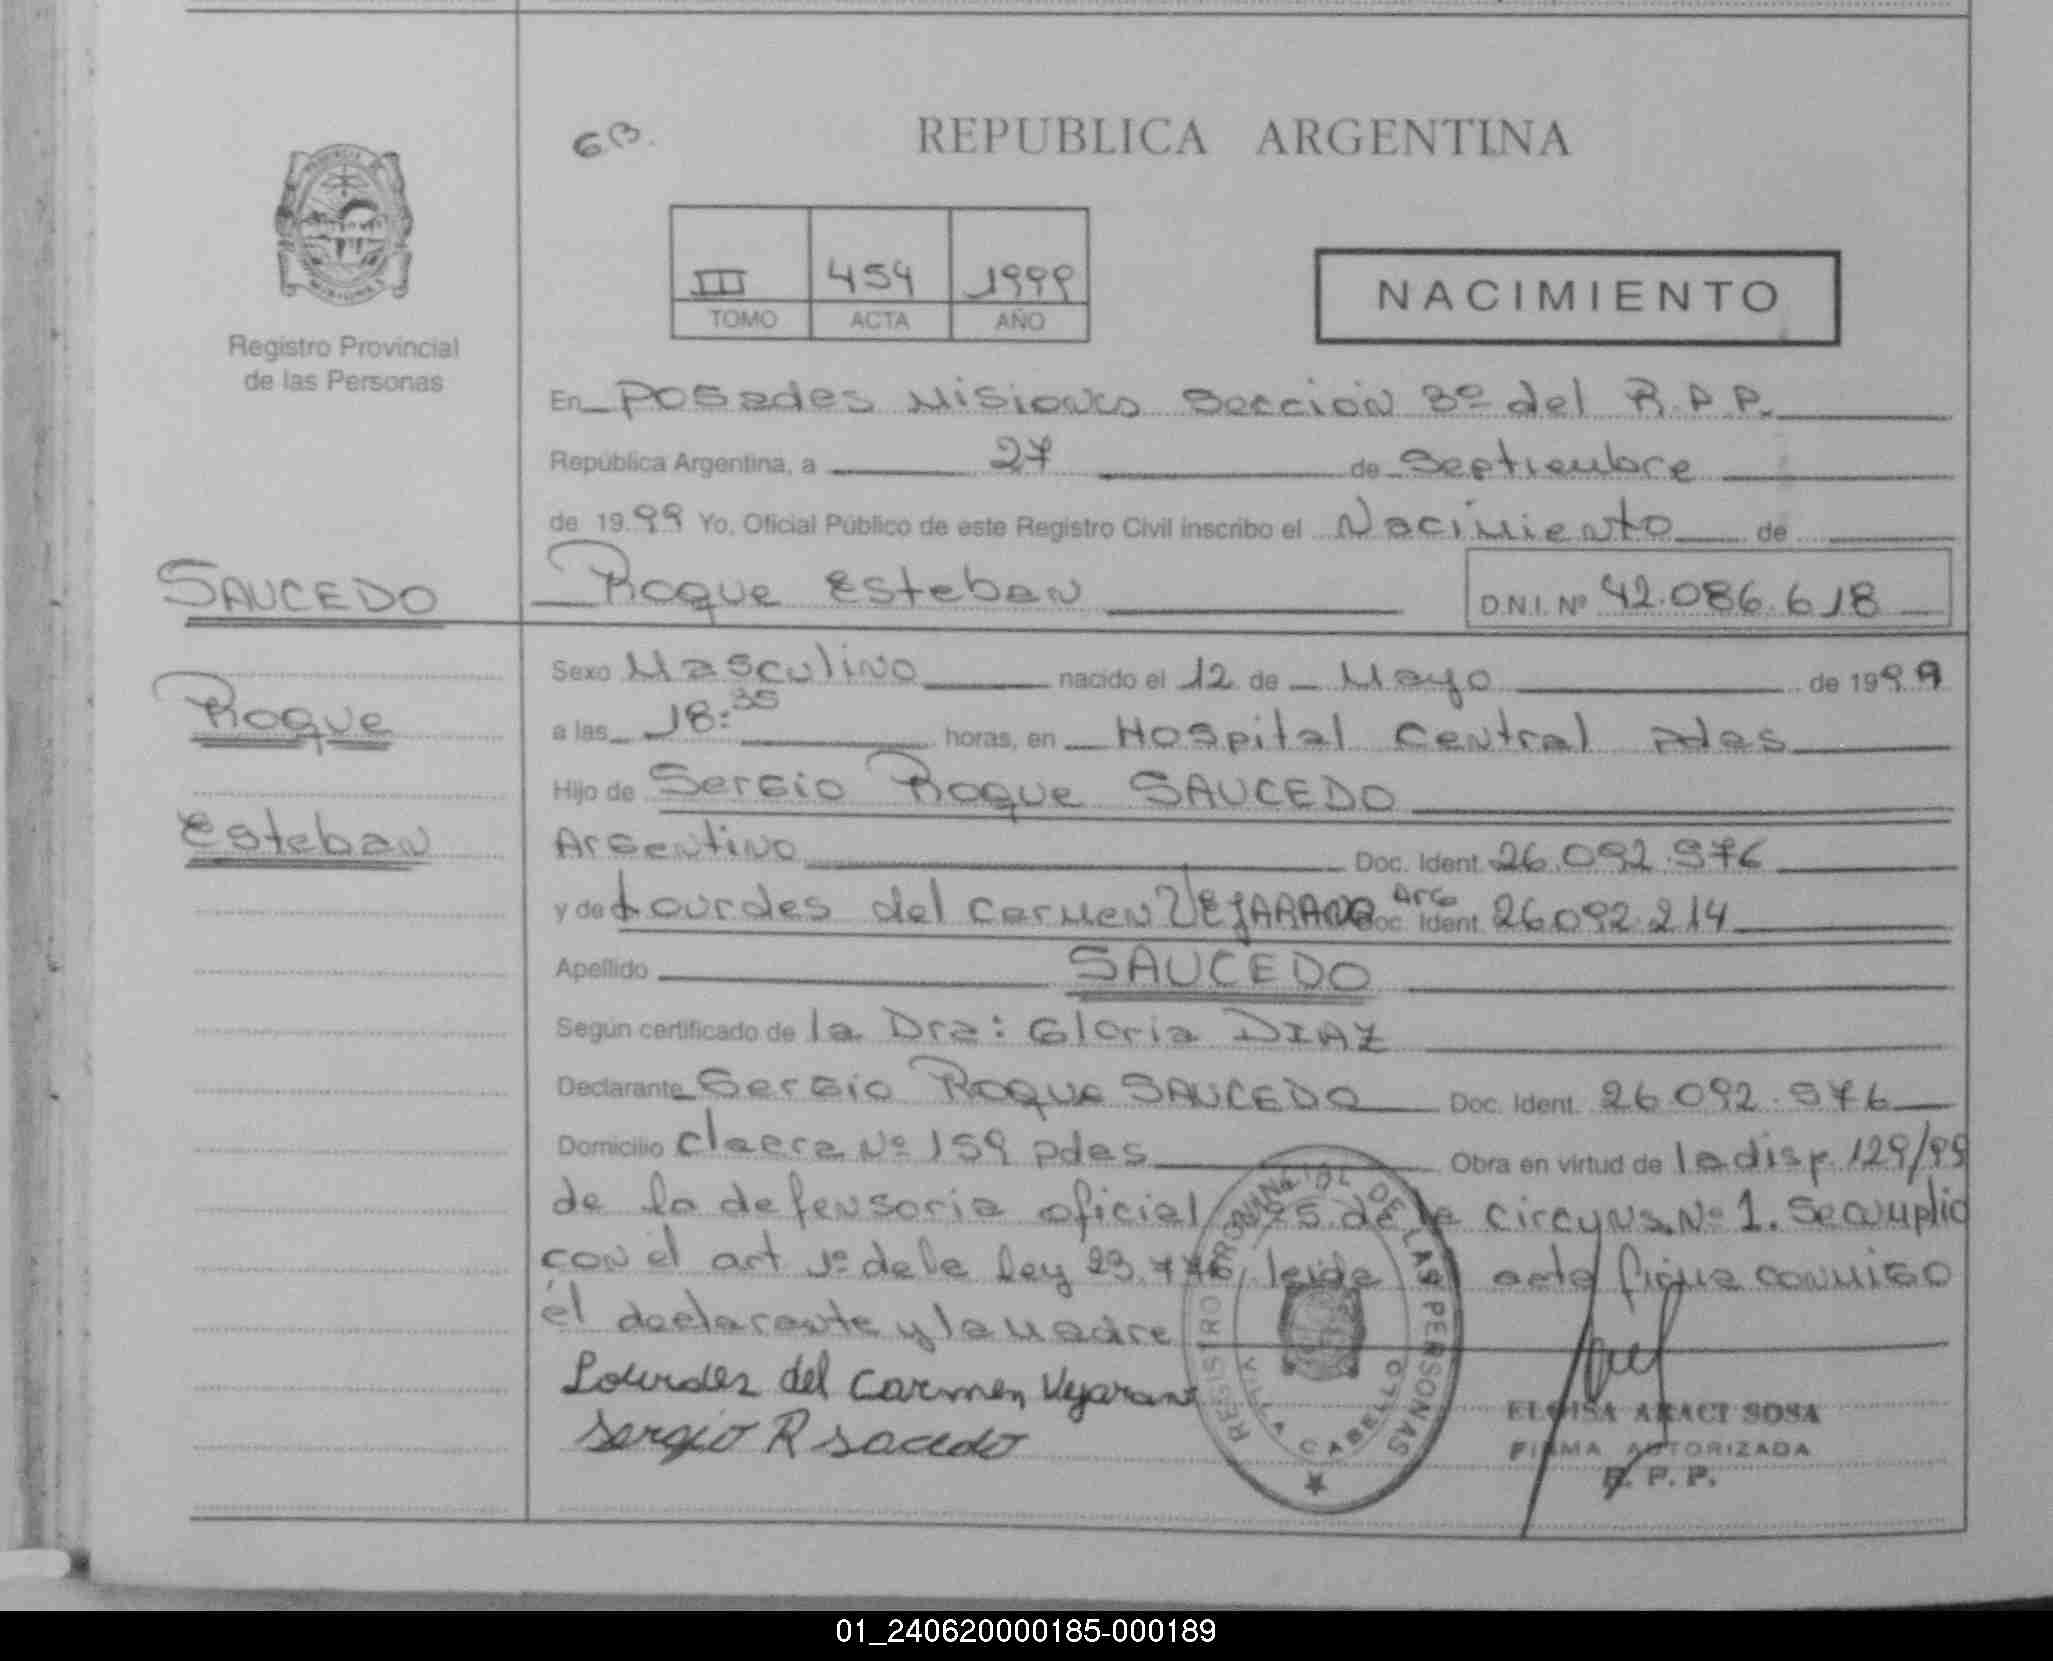 6B.
REPUBLICA ARGENTINA
III 454 1999
TOMO ACTA AÑO
NACIMIENTO
Registro Provincial
de las Personas
En Posades Misiones Sección 3º del R.P.P.
República Argentina, a 27 de Septiembre
de 1999 Yo, Oficial Público de este Registro Civil inscribo el Nacimiento de
SAUCEDO
Roque Esteban D.N.I. Nº 42.086.618
Sexo Masculino nacido el 12 de Mayo de 1999
Roque
a las 18:35 horas, en Hospital Central Pdas
Hijo de Sergio Roque SAUCEDO
Esteban
Argentino Doc. Ident. 26.092.976
y de Lourdes del Carmen VEJARANO Arg Doc. Ident. 26.092.214
Apellido SAUCEDO
Según certificado de la Dra: Gloria DIAZ
Declarante Sergio Roque SAUCEDO Doc. Ident. 26.092.976
Domicilio Claera Nº 159 Pdas Obra en virtud de la disp. 129/99
de la defensoria oficial de la Circuns. Nº 1. Se cumplio
con el art 1º de la ley 23.776, leida el acta firma conmigo
el declarante y la madre
Lourdes del Carmen Vejarano
Sergio R Sacedo
REGISTRO PROVINCIAL DE LAS PERSONAS
VILLA CABELLO
ELOISA ARACI SOSA
FIRMA AUTORIZADA
R. P. P.
01_240620000185-000189